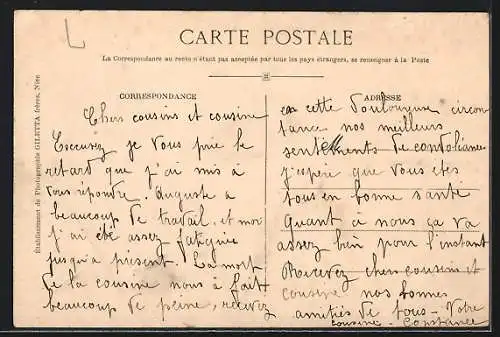 L
CARTE POSTALE
La Correspondance au recto n'étant pas acceptée par tous les pays étrangers, se renseigner à la Poste
CORRESPONDANCE
Chers cousins et cousine
Excusez je vous prie le
retard que j'ai mis à
vous répondre. Auguste a
beaucoup de travail. et moi
j'ai été assez fatiguée
jusqu'a present. La mort
de la cousine nous à fait
beaucoup de peine, recevez
ADRESSE
en cette douloureuse circon
tance nos meilleurs
sentiments de condoléances
J'espère que vous êtes
tous en bonne santé
Quant à nous ça va
assez bien pour l'instant
Recevez chers cousins et
cousine nos bonnes
amitiés de tous - Votre
cousine - Constance
Établissement de Photographie GILETTA frères, Nice